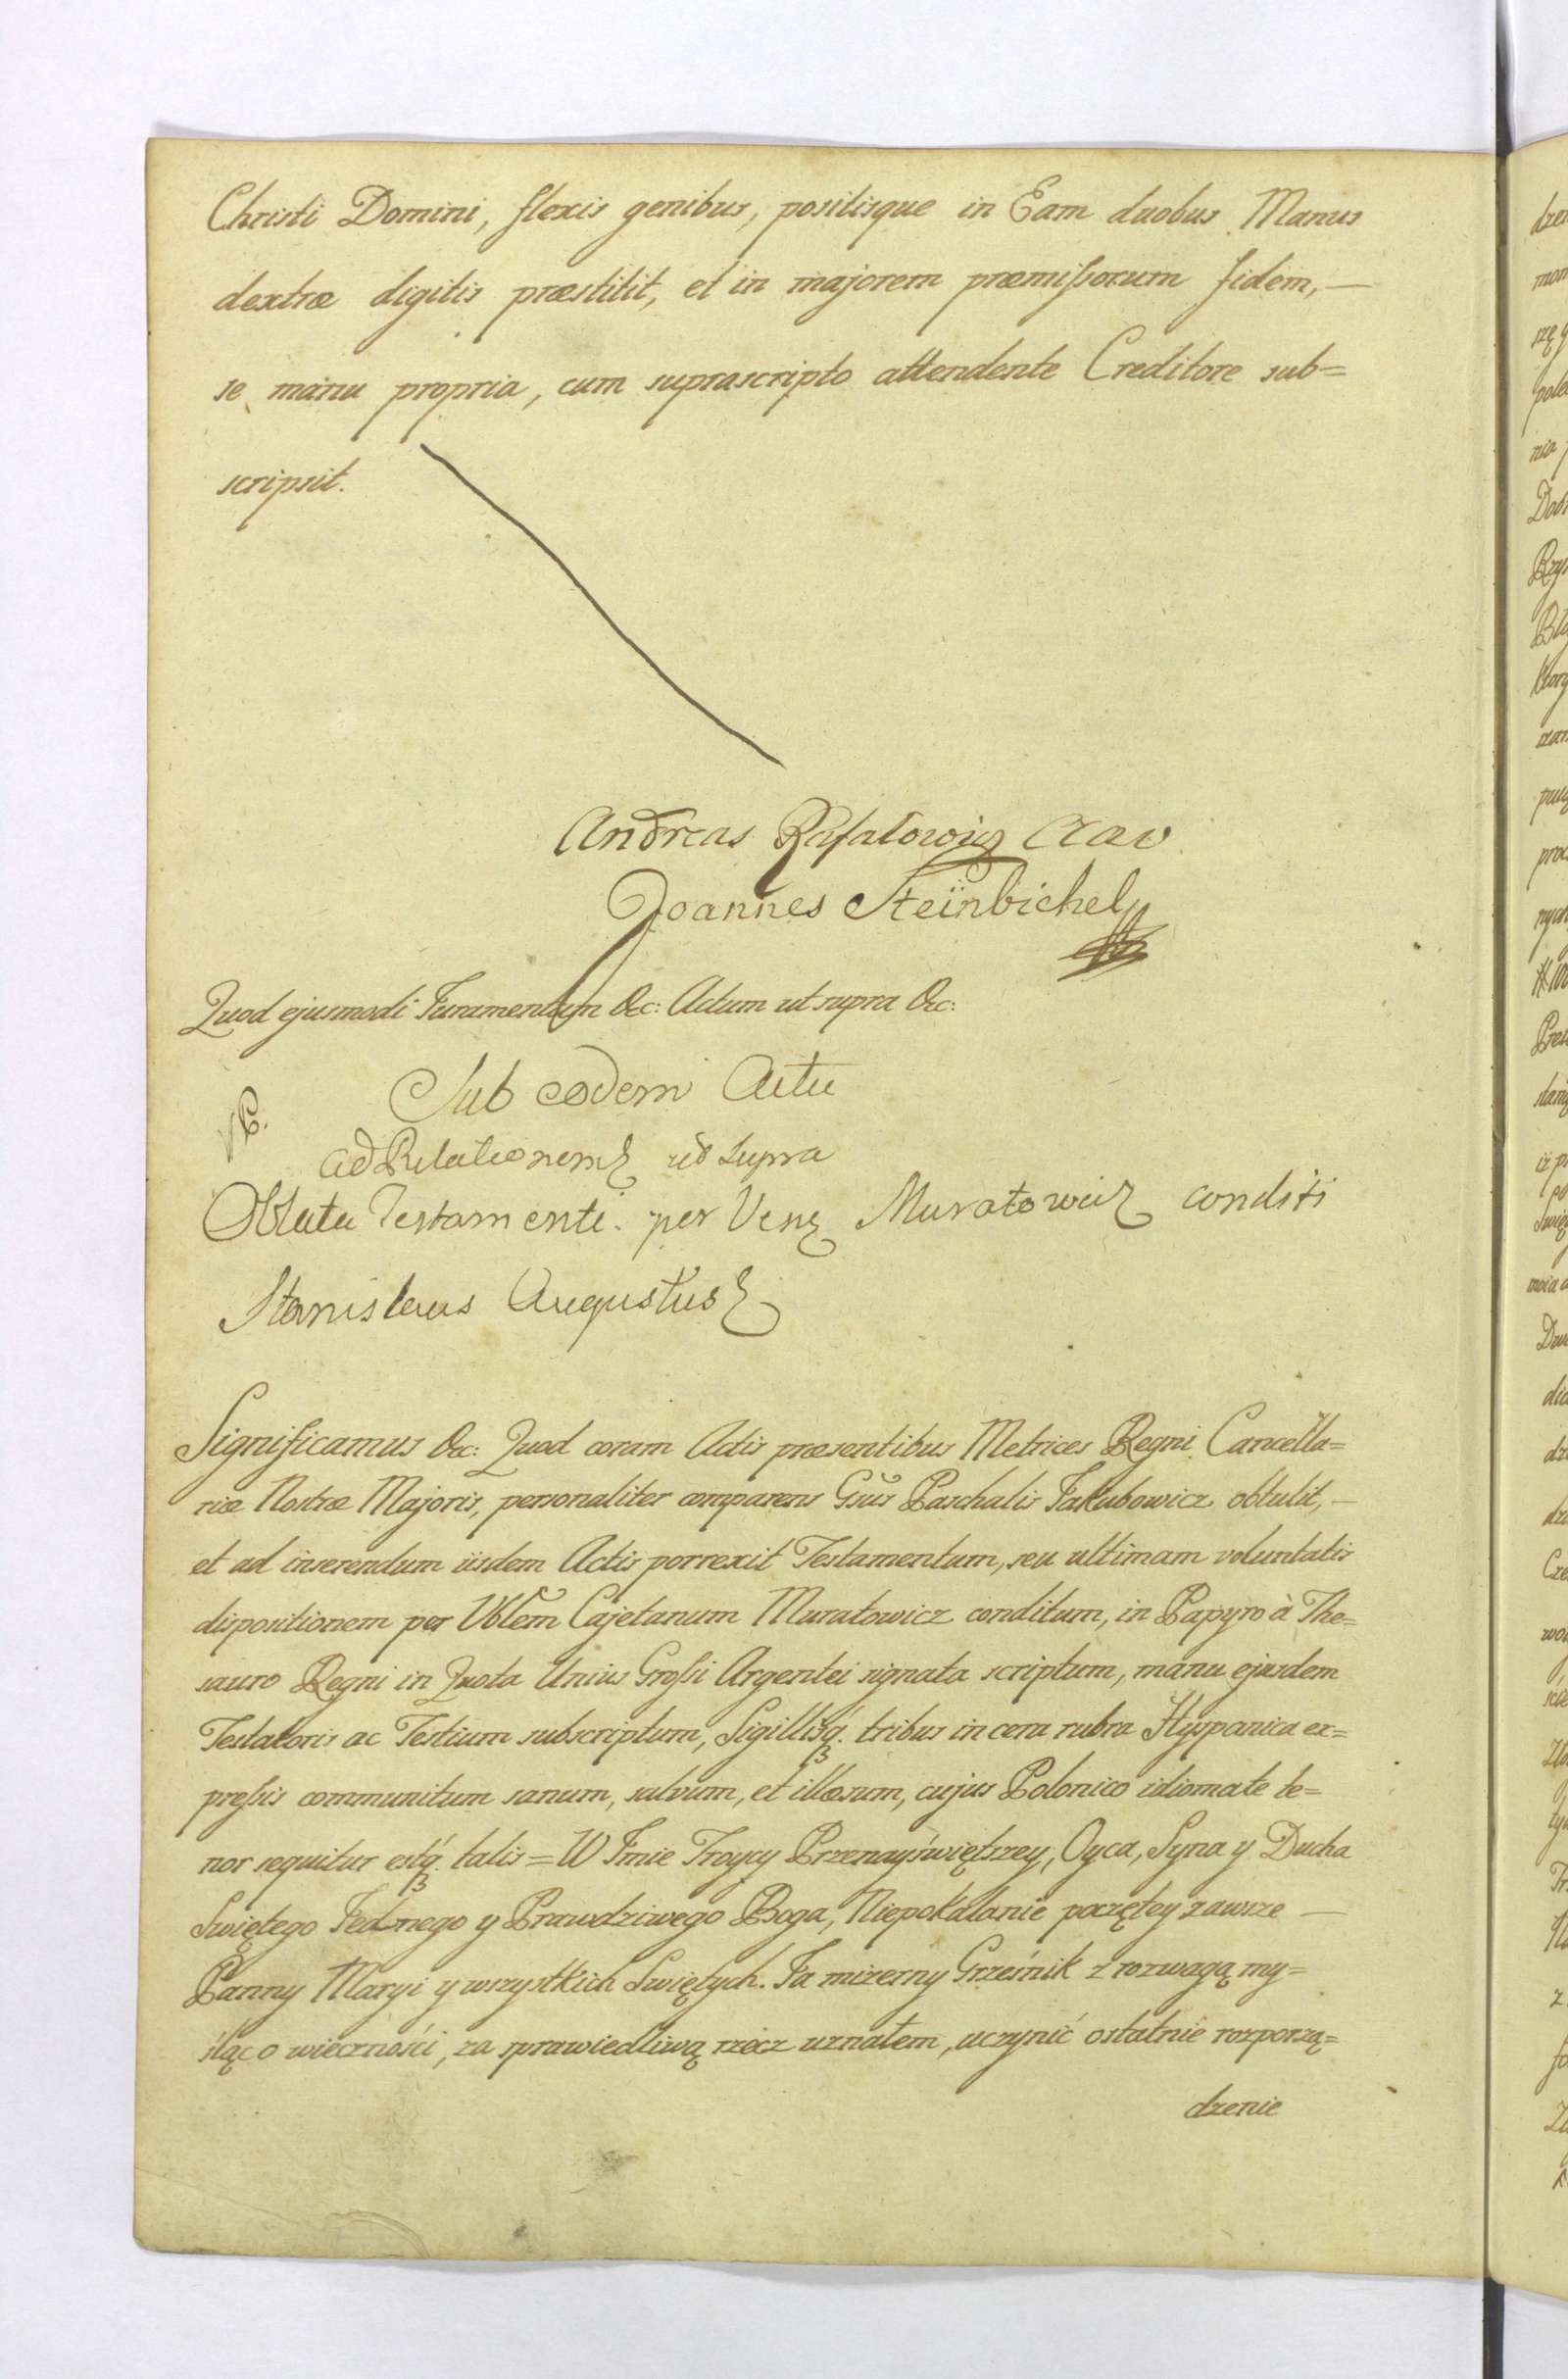 Christi Domini, flexis genibus, positisque in Eam duobus Manus
dextræ digitis præstitit, et in majorem præmissorum fidem, —
se manu propria, cum suprascripto attendente Creditore sub=
scripsit.
Andreas Rafałowicz
Joannes Steinbichel
Quod ejusmodi Juramentum &c: Actum ut supra &c:
Sub eodem Actu
ad Relationem ut supra
Oblata Testamenti per Ven Muratowicz conditi
Stanislaus Augustus
Significamus &c: Quod coram Actis præsentibus Metrices Regni Cancella=
riæ Nostræ Majoris, personaliter comparens Gsus Paschalis Jakubowicz obtulit, —
et ad inserendum iisdem Actis porrexit Testamentum, seu ultimam voluntatis
dispositionem per Vblem Cajetanum Muratowicz conditum, in Papyro à The=
sauro Regni in Quota Unius Grossi Argentei signata scriptum, manu ejusdem
Testatoris ac Testium subscriptum, Sigillisq. tribus in cera rubra Hyspanica ex=
pressis communitum sanum, salvum, et illæsum, cujus Polonico idiomate te=
nor sequitur estq. talis = W Imie Troycy Przenayświętszey, Oyca, Syna y Ducha
Swiętego Jednego y Prawdziwego Boga, Niepokalanie poczętey zawsze —
Panny Maryi y wszystkich Swiętych. Ja mizerny Grześnik z rozwagą my=
śląc o wieczności, za sprawiedliwą rzécz uznałem, uczynić ostatnie rozporzą=
dzenie